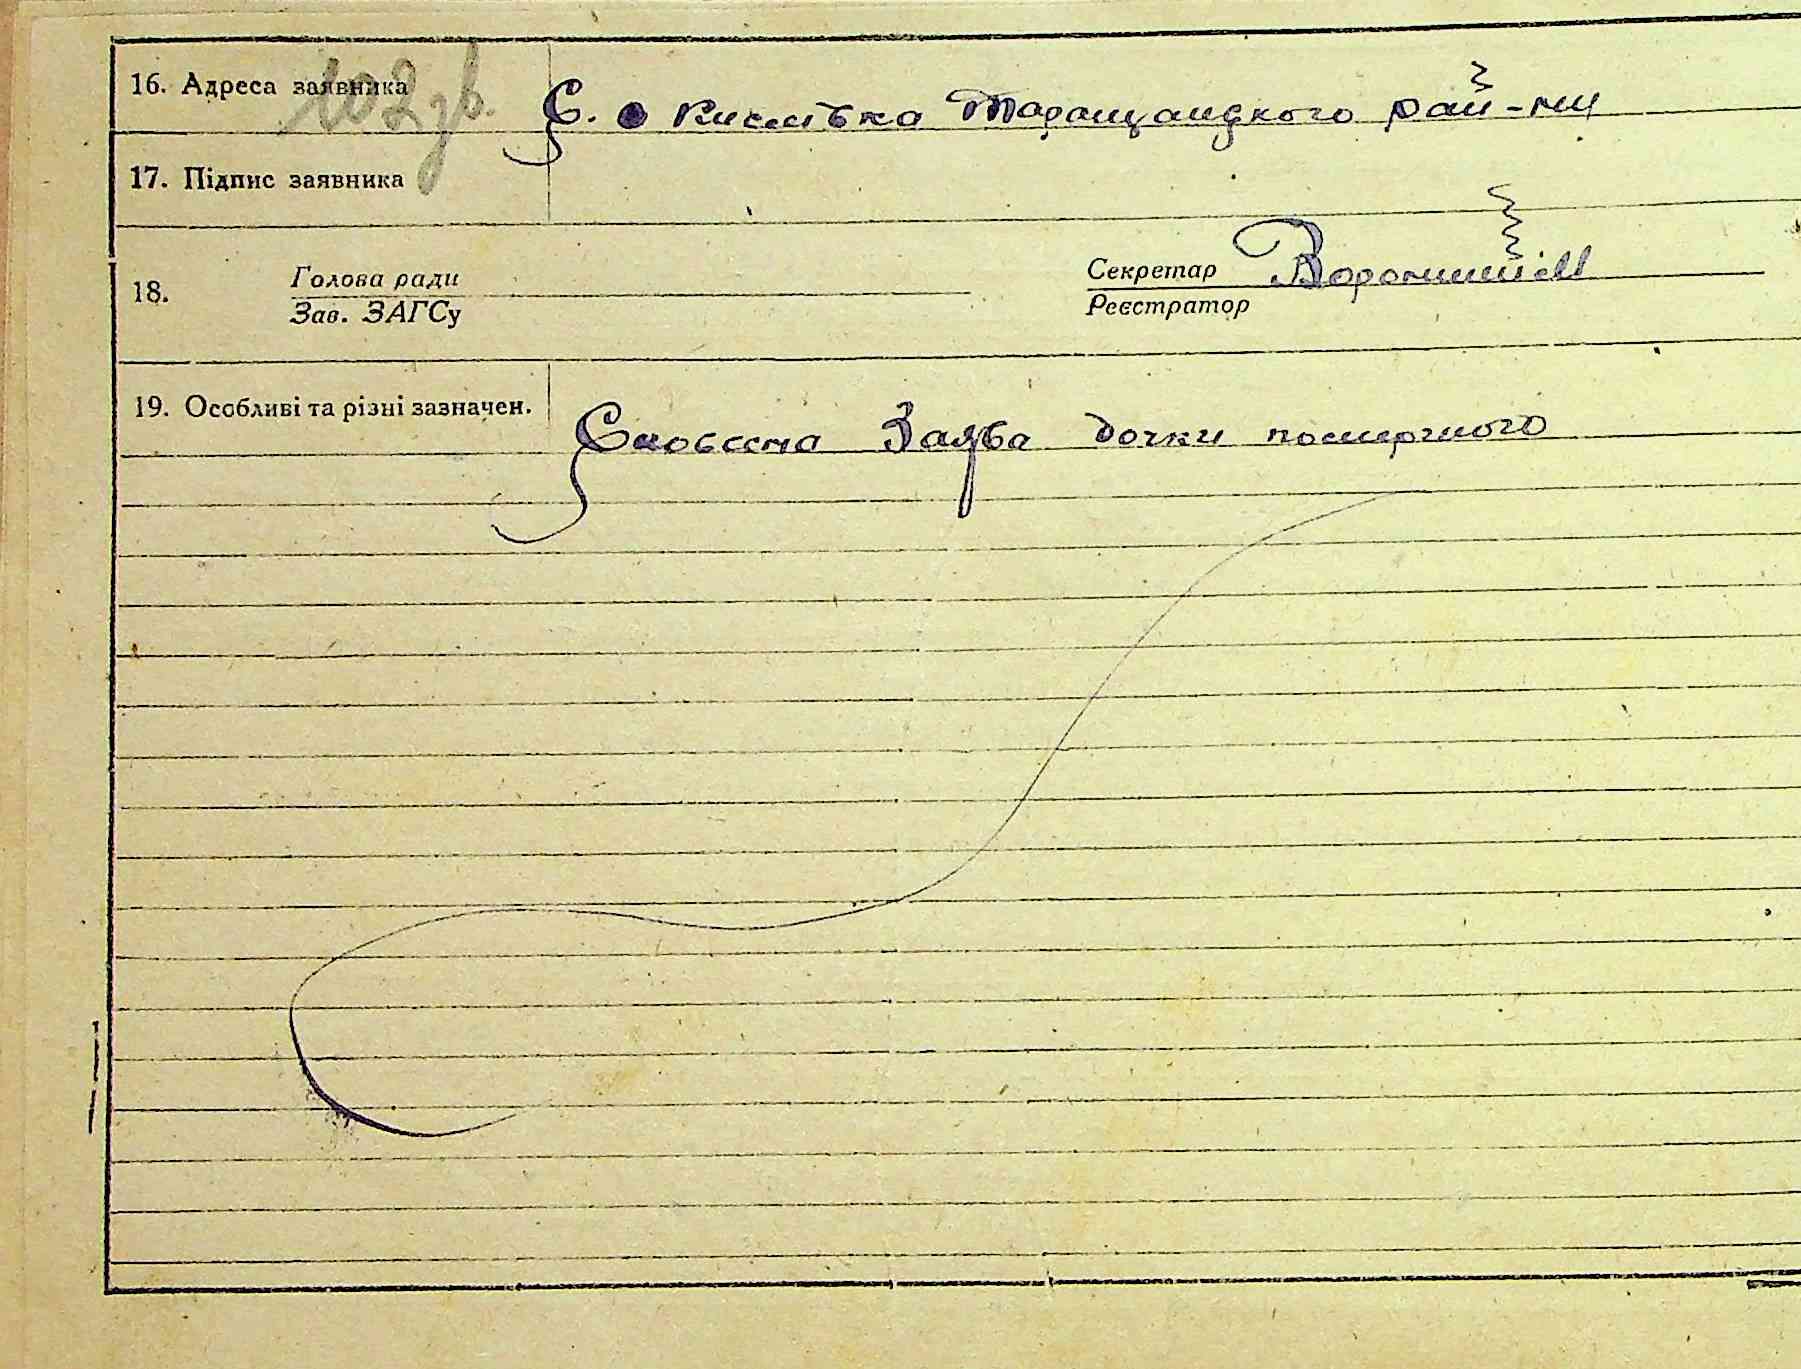 16. Адреса заявника С. Кислівка Таращанського рай-ну
102 зв.
17. Підпис заявника
18. Голова ради Секретар
Зав. ЗАГСу Реєстратор
19. Особливі та різні зазначен. Словесна Заява дочки помершого